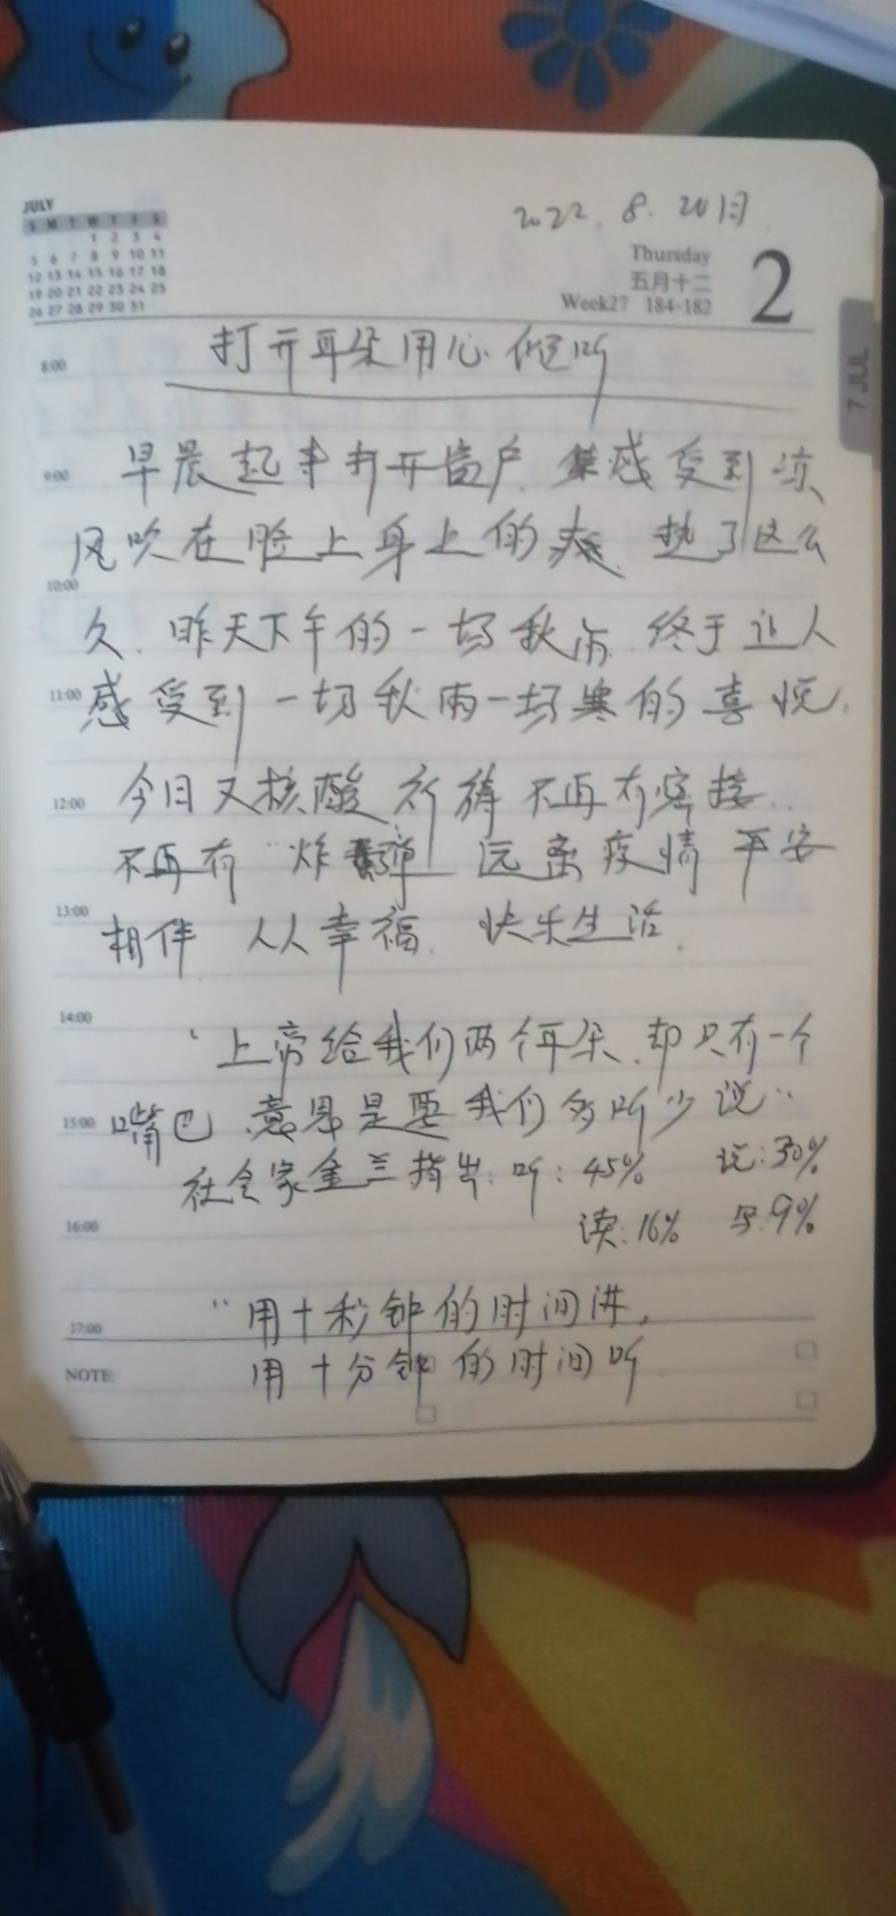 JULY
S M T W T F S
1 2 3 4
5 6 7 8 9 10 11
12 13 14 15 16 17 18
19 20 21 22 23 24 25
26 27 28 29 30 31
2022.8.20日
Thursday
五月十二
Week27 184-182
2
7 JUL
8:00
打开耳朵用心倾听
9:00
早晨起来打开窗户 感受到凉
风吹在脸上身上的爽 热了这么
10:00
久.昨天下午的一场秋雨.终于让人
11:00
感受到一场秋雨一场寒的喜悦.
12:00
今日又核酸 祈祷不再有密接..
不再有"炸弹 远离疫情 平安
13:00
相伴 人人幸福. 快乐生活.
14:00
"上帝给我们两个耳朵.却只有一个
15:00
嘴巴.意思是要我们多听少说"
社会家金兰指出:听:45% 说:30%
16:00
读:16% 写:9%
17:00
"用十秒钟的时间讲,
NOTE:
用十分钟的时间听